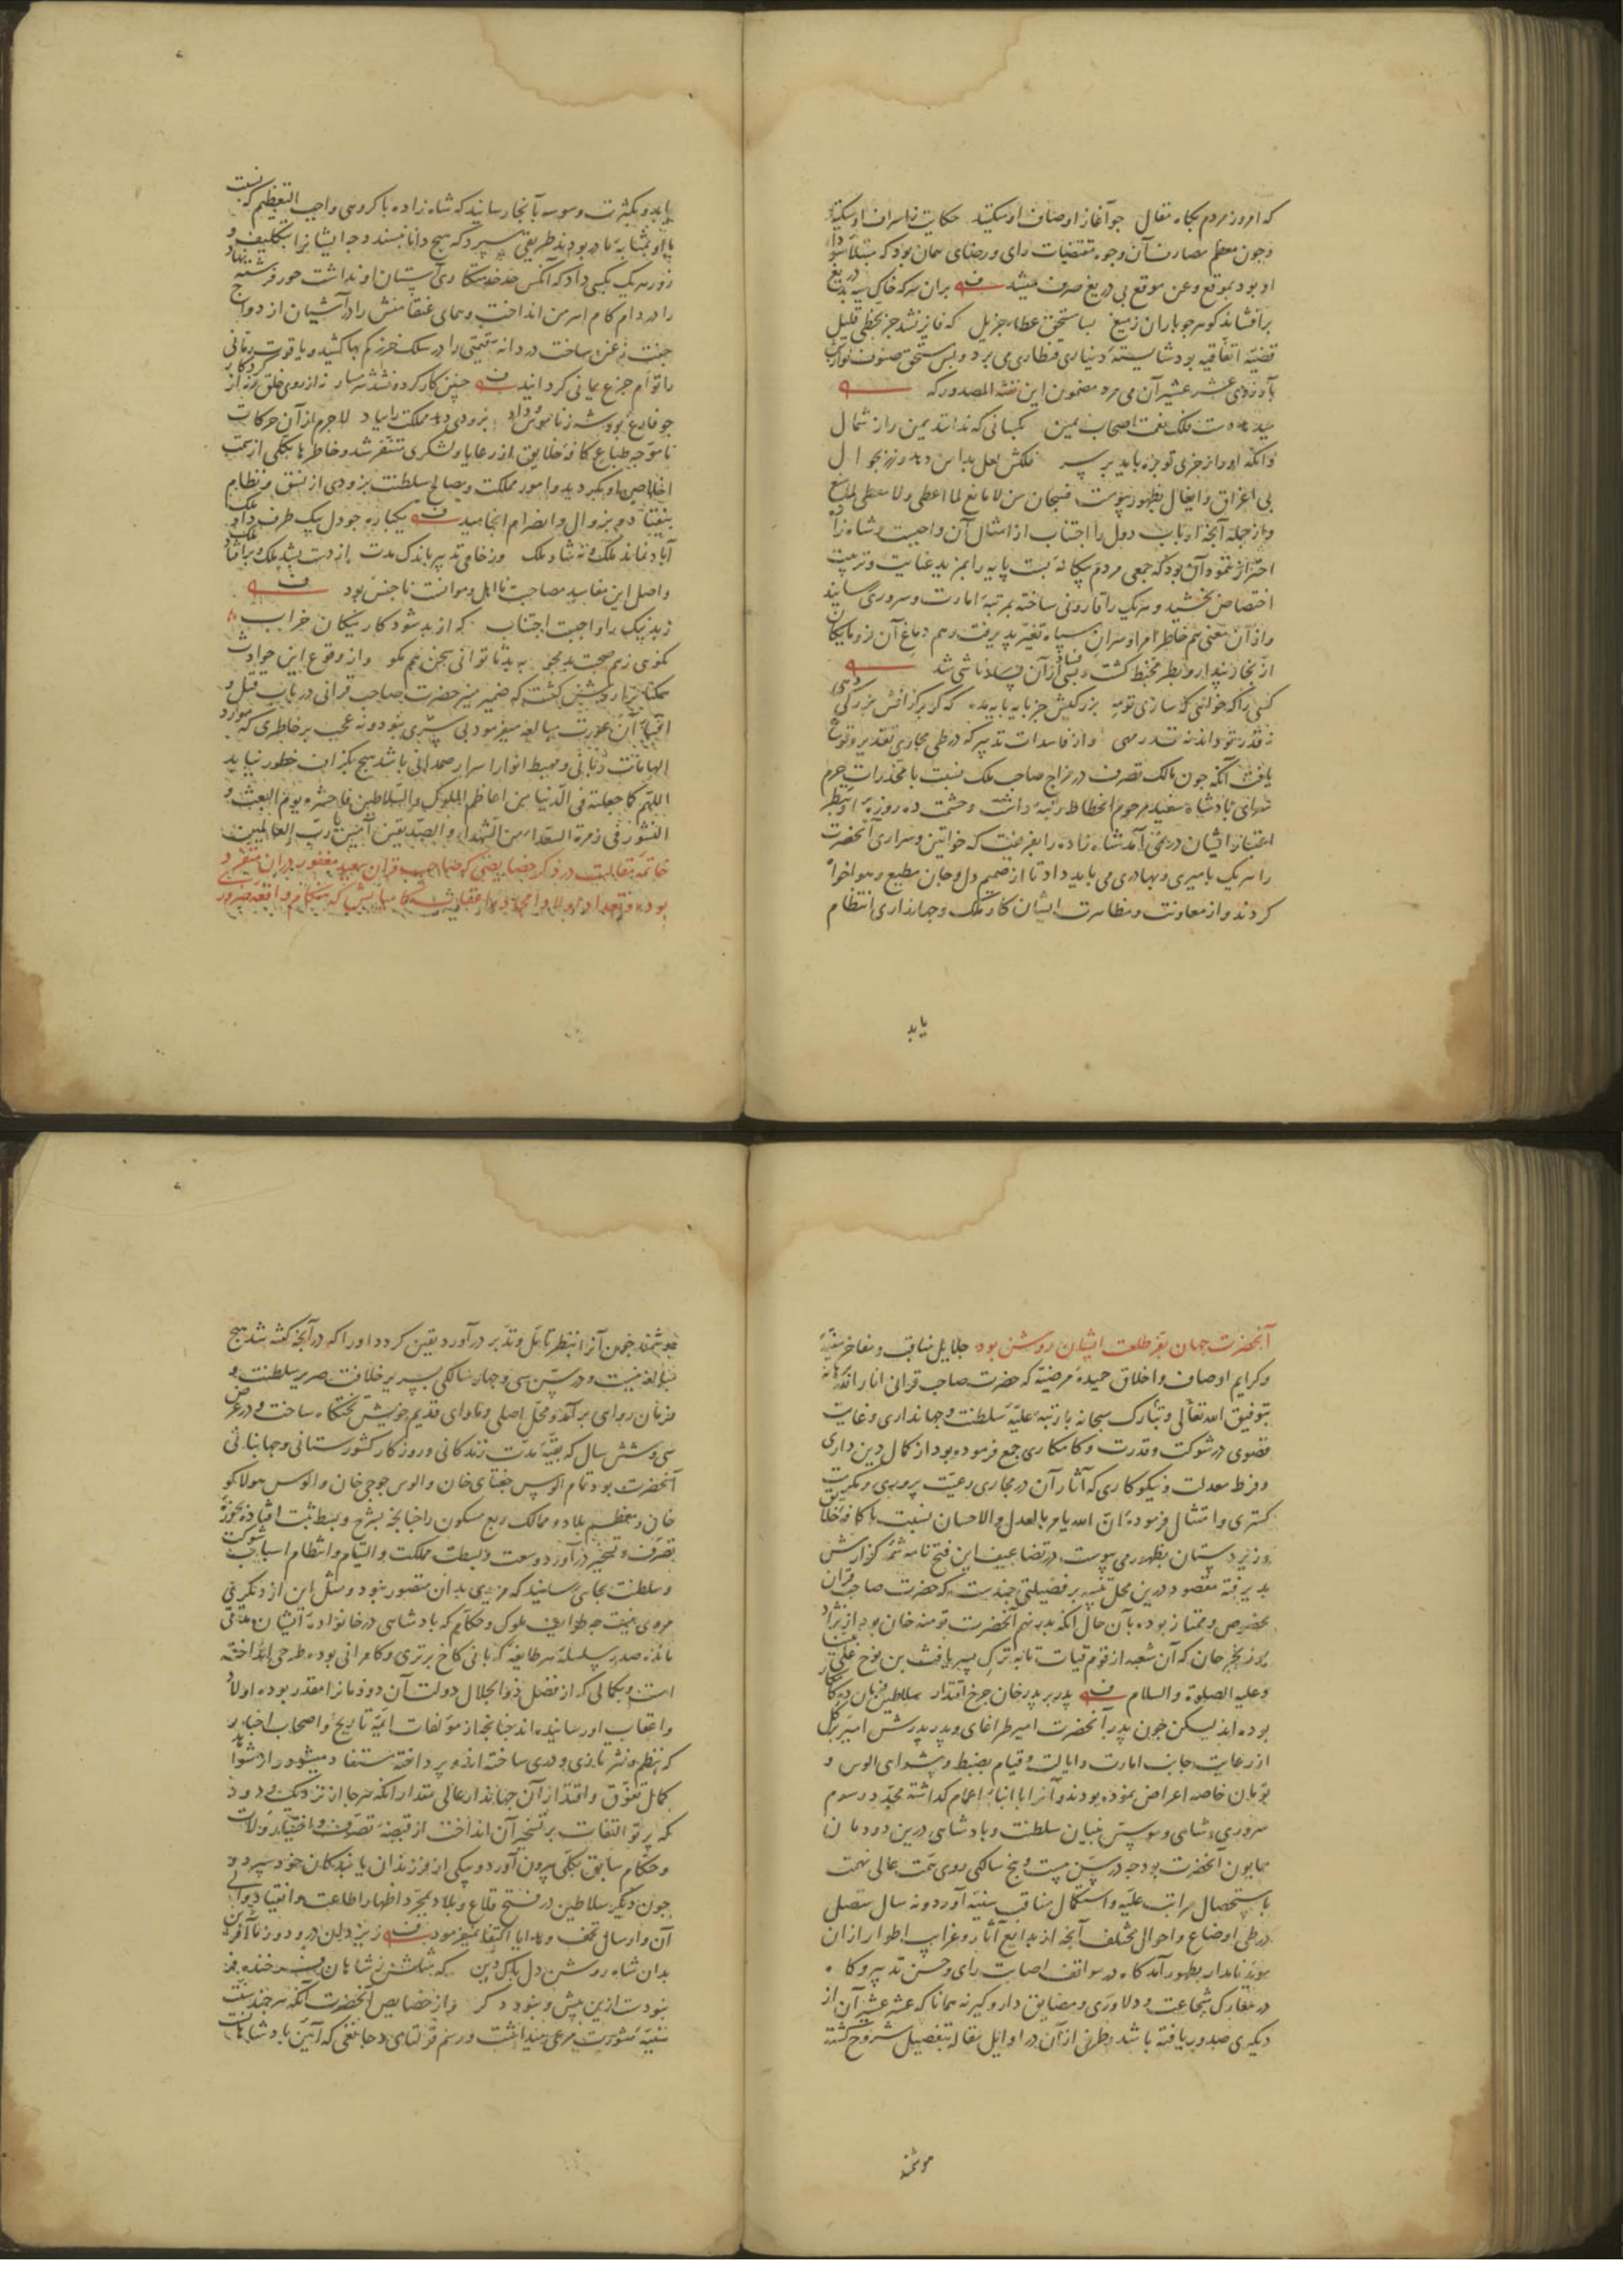 که امروز مردم بگاه مقال جو آغاز اوصاف او میکنند حکایت ز اسراف او میکنند
و چون معظم مصارف آن وجوه مقتضیات رای و رضای
او بود بموقع و غیر موقع بی دریغ صرف میشد بران سر که خاک سیه بی دریغ
بر افشاند گوهر جو باران ز میغ بسا مستحق عطاء جزیل که فایز نشد جز بحظی قلیل
قضیّه اتفاقیه بود شایسته دیناری قنطاری می برد و بس مستحق صنوف نوازش
بآرزوی عشر عشیر آن می مرد مضمون این نفثة المصدور که
کسانی که نداند یمین را از شمال
وانکه او را از خری توبره باید بر سر فلکش لعل بدامن دهد و زر بجوال
بی اغراق و ایغال بظهور پیوست فسبحان من لا مانع لما اعطی و لا معطی لما منع
و از جمله آنچه ارباب دول را اجتناب از امثال آن واجبست و شاه زاده
احتراز ننمود آن بود که جمعی مردم بیگانه پست پایه را بمزید عنایت و تربیت
اختصاص بخشید و هر یک را قارونی ساخته بمرتبه امارت و سروری رسانید
و از آن معنی هم خاطر امرا و سران سپاه تغیّر پذیرفت و هم دماغ آن فرومایگان
از بخار پندار و بطر مخبط گشت و بسی فساد از آن ناشی شد
کسی را که خواهی که سازی
نه قدر تو داند نه قدر مهی و از فاسدات تدبیر که در طی مجاری تقدیر وقوع
یافت آنکه چون مالک تصرف در مزاج صاحب ملک نسبت با مخدرات حرم
سرای پادشاه سعید مرحوم انحطاط رتبه داشت و حشمت ده روزه
اعتبار ایشان در نمی آمد شاه زاده را بفریفت که خواتین و سراری آنحضرت
را هر یک بامیری و بهادری می باید داد تا از صمیم دل و جان مطیع و هواخواه
گردند و از معاونت و مظاهرت ایشان کار ملک و جهانداری انتظام
یابد
یابد و بکثرت وسوسه بآنجا رسانید که شاه زاده با گروهی واجب التعظیم که نسبت
با او بمثابه مادر بودند طریقی سپرد که هیچ دانا نپسندد چه ایشانرا بتکلیف و
زور هر یک بکسی داد که آنکس حد خدمتکاری آستان او نداشت حور فرشته نهاد
را در دام کام اهرمن انداخت و همای عنقا منش را در آشیان ازدواج
جفت زغن ساخت دردانه قیمتی را در سلک خرز کم بها کشید و یاقوت رمّانی
را توأم جزع یمانی گردانید چنین کار کرد و نشد شرمسار نه از روی خلق و نه از کردگار
لاجرم از آن حرکات
ناموجه طباع کافه خلایق از رعایا و لشکری متنفر شد و خاطرها بکلی از سمت
اخلاص او بگردید و امور مملکت و مصالح سلطنت بزودی از نسق و نظام
بیفتاد و بزوال و انصرام انجامید یکباره جو دل بیک طرف داد ملک
آباد نماند ملک و نه شاد ملک وز خامی تدبیر باندک مدت از دست بشد ملک و بیافتاد ملک
و اصل این مفاسد مصاحبت نااهل و موانست ناجنس بود
ز بد نیک را واجبست اجتناب که از بد شود کار نیکان خراب
نکوی ز هم صحبت بد مجو به بد تا توانی سخن هم مگو و از وقوع این حوادث
همکنانرا روشن گشت که ضمیر منیر حضرت صاحب قرانی در باب قتل و
افناء آن عورت مبالغه میفرمود بی سرّی نبود و نه عجب بر خاطری که موارد
الهامات ربّانی و مهبط انوار اسرار صمدانی باشد هیچ بگزاف خطور نیابد
اللهم کما جعلته فی الدنیا من اعاظم الملوک و السلاطین فاحشره یوم البعث و
النشور فی زمرة السعداء من الشهداء و الصدّیقین آمین یا ربّ العالمین
خاتمه مقالت در ذکر خصایصی که صاحب قران سعید مغفور بدان متفرد
بوده و تعداد اولاد امجاد و اعقاب کامیابش که هنگام واقعه ضرور
آنحضرت جهان بفر طلعت ایشان روشن بود جلایل مناقب و مفاخر سنیّه
و کرایم اوصاف و اخلاق حمیده مرضیّه که حضرت صاحب قرانی انار الله برهانه
بتوفیق الله تعالی و تبارک سبحانه با رتبه علیّه سلطنت و جهانداری و غایت
قصوی در شوکت و قدرت و کامکاری جمع فرموده بود از کمال دین داری
و فرط معدلت و نیکوکاری که آثار آن در مجاری رعیت پروری و مکرمت
گستری و امتثال فرموده انّ الله یأمر بالعدل و الاحسان نسبت با کافه خلایق
و زیردستان بظهور می پیوست در تضاعیف این فتح نامه شمه گزارش
پذیرفته مقصود درین محل تنبیه بر فضیلتی چندست که حضرت صاحب قران
بتخصیص و ممتاز بوده بآن حال آنکه پدر نهم آنحضرت تومنه خان بود از نژاد
بوزنجر خان که آن شعبه از قوم قیات تا به ترک پسر یافث بن نوح علی نبینا
و علیه الصلوة و السلام پدر بر پدر خان چرخ اقتدار سلاطین فرمان ده کامکار
بوده اند لیکن چون پدر آنحضرت امیر طراغای و پدر پدرش امیر برکل
از رعایت جانب امارت و ایالت و قیام بضبط و پیشوای الوس و
تومان خاصه اعراض نموده بودند و آنرا با ابناء اعمام گذاشته مجدد رسوم
سروری و شاهی و مؤسس بنیان سلطنت و پادشاهی درین دودمان
همایون آنحضرت بود چه در سن بیست و پنج سالگی روی همت عالی نهمت
باستحصال مراتب علیّه و استکمال مناقب سنیّه آورد و نه سال متصل
در طی اوضاع و احوال مختلف آنچه از بدایع آثار و غرایب اطوار از ان
مؤید نامدار بظهور آمد گاه در مواقف اصابت رای و حسن تدبیر و گاه
در معارک شجاعت و دلاوری و مضایق دار و گیر نه همانا که عشر عشیر آن از
دیگری صدور یافته باشد و طرفی از آن در اوایل مقاله بتفصیل مشروح گشته
هوشمند
هوشمند چون آنرا بنظر تأمل و تدبر درآورد یقین گردد او را که در آنچه گفته شد هیچ
مبالغه نیست و در سن سی و چهار سالگی بسریر خلافت مصیر سلطنت و
فرمان روای برآمد و محل اصلی و ماوای قدیم خویش تختگاه ساخت و در عرض
سی و شش سال که بقیه مدت زندگانی و روزگار کشورستانی و جهانبانی
آنحضرت بود تمام الوس جغتای خان و الوس جوجی خان و الوس هولاکو
خان و معظم بلاد و ممالک ربع مسکون را چنانچه بشرح و بسط ثبت افتاده بحوزه
تصرف و تسخیر درآورد و وسعت و بسطت مملکت و التیام و انتظام اسباب شوکت
و سلطنت بجای رسانید که مزیدی بدان متصور نبود و مثل این از دیگری
مروی نیست چه طوایف ملوک و حکام که پادشاهی در خانواده ایشان متمادی
مانده صدر سلسله هر طایفه که بانی کاخ برتری و کامرانی بوده طرحی انداخته
است و بکمالی که از فضل ذوالجلال دولت آن دودمانرا مقدر بوده اولاد
و اعقاب او رسانیده اند چنانچه از مؤلفات ایمّه تاریخ و اصحاب اخبار
که بنظم و نثر تازی و دری ساخته اند و پرداخته مستفاد میشود و از شواهد
کمال تفوّق و اقتدار آن جهاندار عالی مقدار آنکه هر جا از نزدیک و دور
که پرتو التفات بر تسخیر آن انداخت از قبضه تصرف و اختیار ولات
و حکام سابق بکلی بیرون آورد و بیکی از فرزندان یا بندگان خود سپرد و
چون دیگر سلاطین در فتح قلاع و بلاد بمجرد اظهار اطاعت و انقیاد والی
آن و ارسال تحف و هدایا اکتفا نمیفرمود ز یزدان درود و ز ما آفرین
بدان شاه روشن دل پاک دین که مثلش ز شاهان
نبودست ازین پیش و نبود دگر و از خصایص آنحضرت آنکه هر چند سنت
سنیّه مشورت مرعی میداشت و رسم قرلتای و جانقی که آیین پادشاهانست